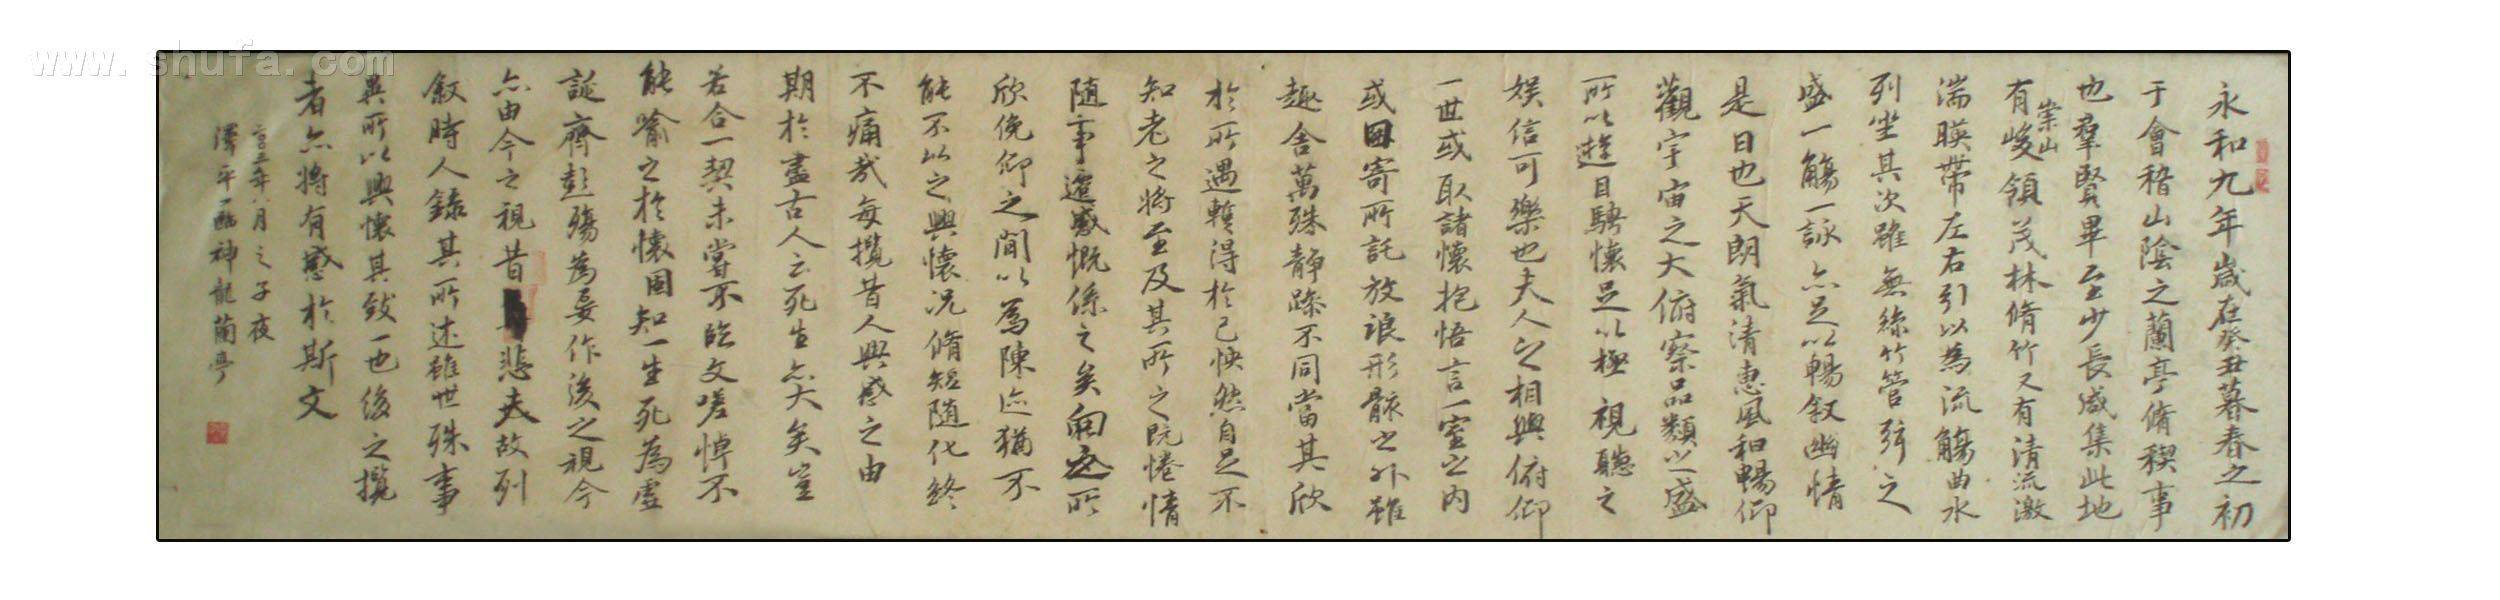 www.shufa.com
永和九年歲在癸丑暮春之初
于會稽山陰之蘭亭脩稧事
也羣賢畢至少長咸集此地
有崇山峻領茂林脩竹又有清流激
湍暎帶左右引以為流觴曲水
列坐其次雖無絲竹管弦之
盛一觴一詠亦足以暢叙幽情
是日也天朗氣清惠風和暢仰
觀宇宙之大俯察品類之盛
所以遊目騁懷足以極視聽之
娛信可樂也夫人之相與俯仰
一世或取諸懷抱悟言一室之內
或因寄所託放浪形骸之外雖
趣舍萬殊靜躁不同當其欣
於所遇蹔得於己怏然自足不
知老之將至及其所之既惓情
隨事遷感慨係之矣向之所
欣俛仰之閒以為陳迹猶不
能不以之興懷況脩短隨化終
期於盡古人云死生亦大矣豈
不痛哉每攬昔人興感之由
若合一契未嘗不臨文嗟悼不
能喻之於懷固知一生死為虛
誕齊彭殤為妄作後之視今
亦由今之視昔悲夫故列
叙時人錄其所述雖世殊事
異所以興懷其致一也後之攬
者亦將有感於斯文
月之子夜
澤平臨神龍蘭亭